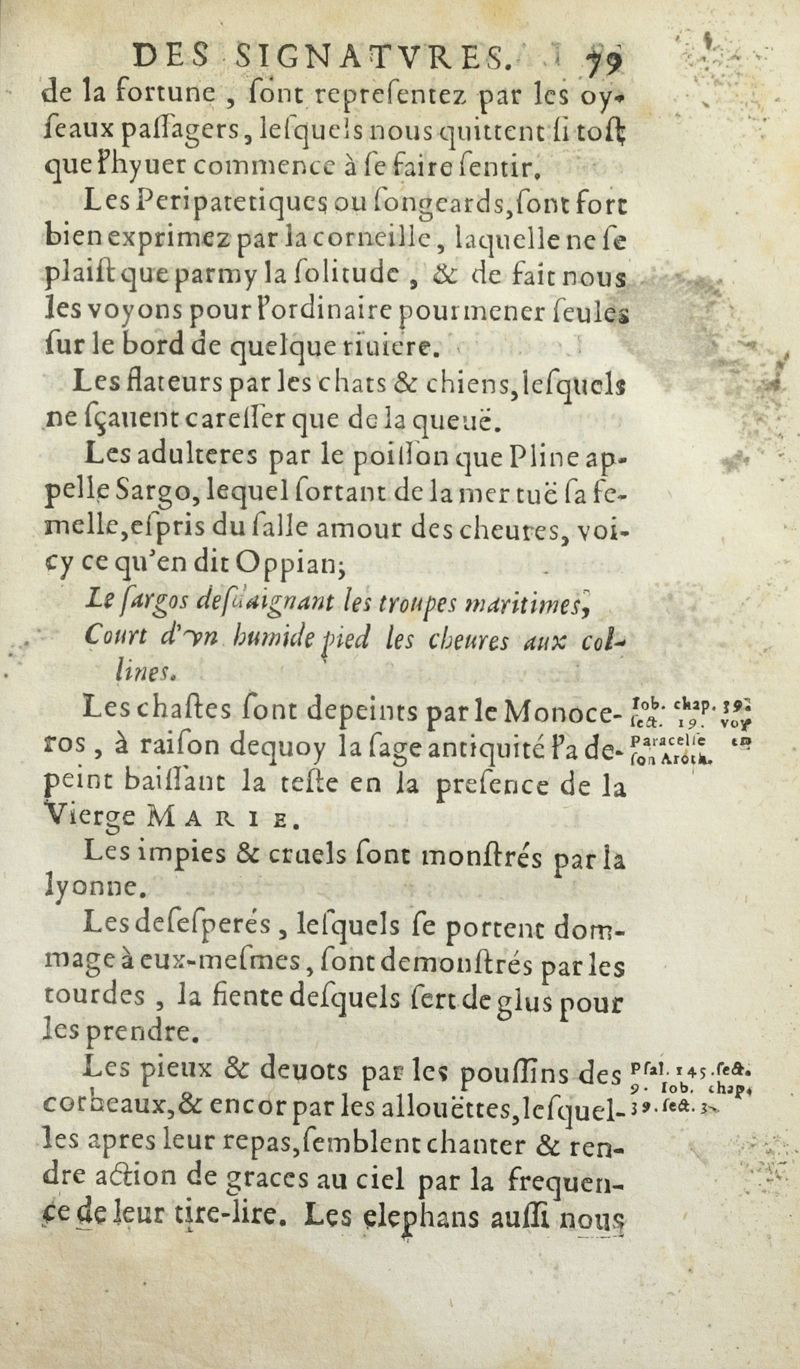 DES SIGNATVRES. 79
de la fortune , ſont repreſentez par les oy-
ſeaux paſſagers, leſquels nous quittent ſi toſt
que l'hyuer commence à ſe faire ſentir.
Les Peripatetiques ou ſongeards,ſont fort
bien exprimez par la corneille, laquelle ne ſe
plaiſt que parmy la ſolitude , & de fait nous
les voyons pour l'ordinaire pourmener ſeules
ſur le bord de quelque riuiere.
Les flateurs par les chats & chiens,leſquels
ne ſçauent careſſer que de la queuë.
Les adulteres par le poiſſon que Pline ap-
pelle Sargo, lequel ſortant de la mer tuë ſa fe-
melle,eſpris du ſalle amour des cheures, voi-
cy ce qu'en dit Oppian;
Le ſargos deſdaignant les troupes maritimes,
Court d'vn humide pied les cheures aux col-
lines.
Les chaſtes ſont depeints par le Monoce-
ros , à raiſon dequoy la ſage antiquité l'a de-
peint baiſſant la teſte en la preſence de la
Vierge MARIE.
Iob. chap. 39.
ſect. 19. voy
Paracelſe en
ſon Arock.
Les impies & cruels ſont monſtrés par la
lyonne.
Les deſeſperés , leſquels ſe portent dom-
mage à eux-meſmes, ſont demonſtrés par les
tourdes , la fiente deſquels ſert de glus pour
les prendre.
Les pieux & deuots par les pouſſins des
corbeaux,& encor par les allouëttes,leſquel-
les apres leur repas,ſemblent chanter & ren-
dre action de graces au ciel par la frequen-
ce de leur tire-lire. Les elephans auſſi nous
Pſal. 145. ſect.
9. Iob. chap.
39. ſect. 3.